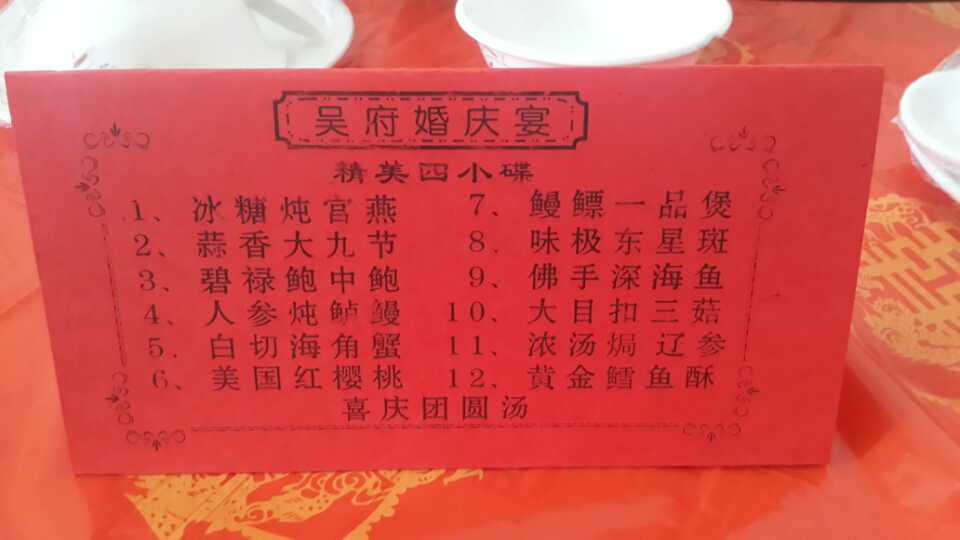 吴府婚庆宴
精美四小碟
1、冰糖炖官燕
2、蒜香大九节
3、碧禄鲍中鲍
4、人参炖鲈鳗
5.白切海角蟹
6、美国红樱桃
7、鳗鳔一品煲
8.味极东星斑
9、佛手深海鱼
10、大目扣三菇
11、浓汤焗辽参
12、黄金鳕鱼酥
喜庆团圆汤